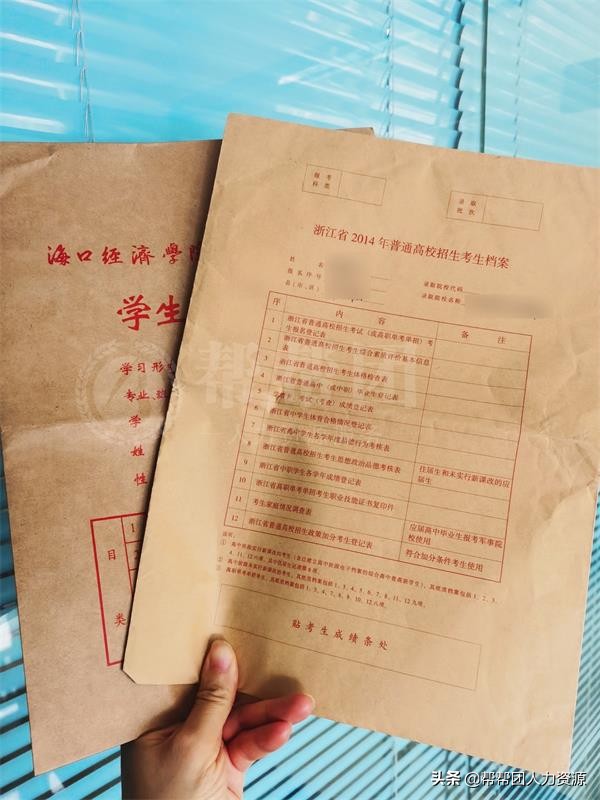 海口经濟學
学生
学习形
专业、班
学
姓
性
目
类
1
2
报考
科类
录取
批次
浙江省2014年普通高校招生考生档案
姓名
报名序号
县(市、区)
录取院校代码
录取院校名称
序 内容 备注
1 浙江省普通高校招生考试(或高职单考单招)考生报名登记表
2 浙江省普通高校招生考生综合素质评价基本信息表
3 浙江省普通高校招生考生体格检查表
4 浙江省普通高中(或中职)毕业生登记表
5 考试(考查)成绩登记表
6 浙江省中学生体育合格情况登记表
7 浙江省高中学生各学年度品德行为考核表
8 浙江省普通高校招生考生思想政治品德考核表 往届生和未实行新课改的应届生
9 浙江省中职学生各学年成绩登记表
10 浙江省高职单考单招考生职业技能证书复印件
11 考生家庭情况调查表 应届高中毕业生报考军事院校使用
12 浙江省普通高校招生政策加分考生登记表 符合加分条件考生使用
说明:
贴考生成绩条处
帮帮团
头条 @帮帮团人力资源